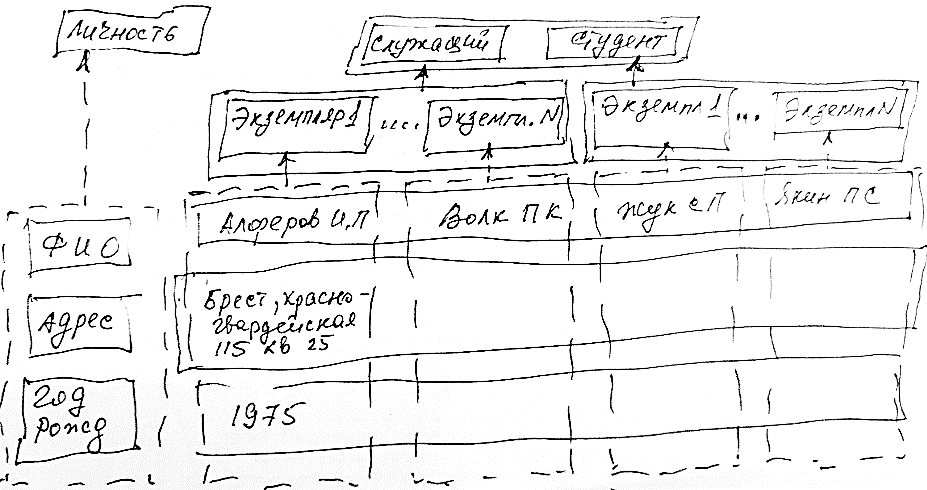 Личность
Служащий
Студент
Экземпляр1 .... Экземпл.N
Экземпл1 ... ЭкземплN
ФИО
Алферов И.П
Волк ПК
Жук СП
Якин ПС
Адрес
Брест, красно-
гвардейская
115 кв 25
Год
рожд
1975